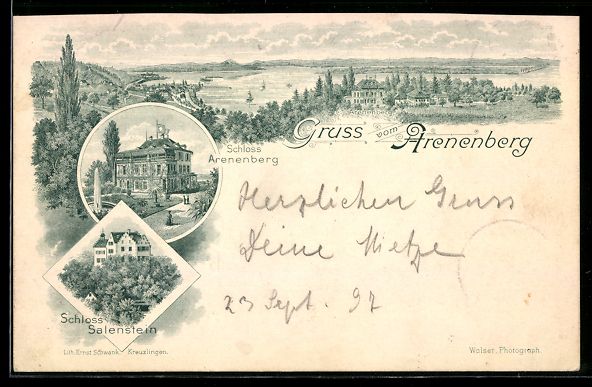 Arenenberg
Gruss vom Arenenberg
Schloss
Arenenberg
Herzlichen Gruss
Deine Mietze
23 Sept. 97
Schloss
Salenstein
Lith. Ernst Schwank, Kreuzlingen.
Walser, Photograph.